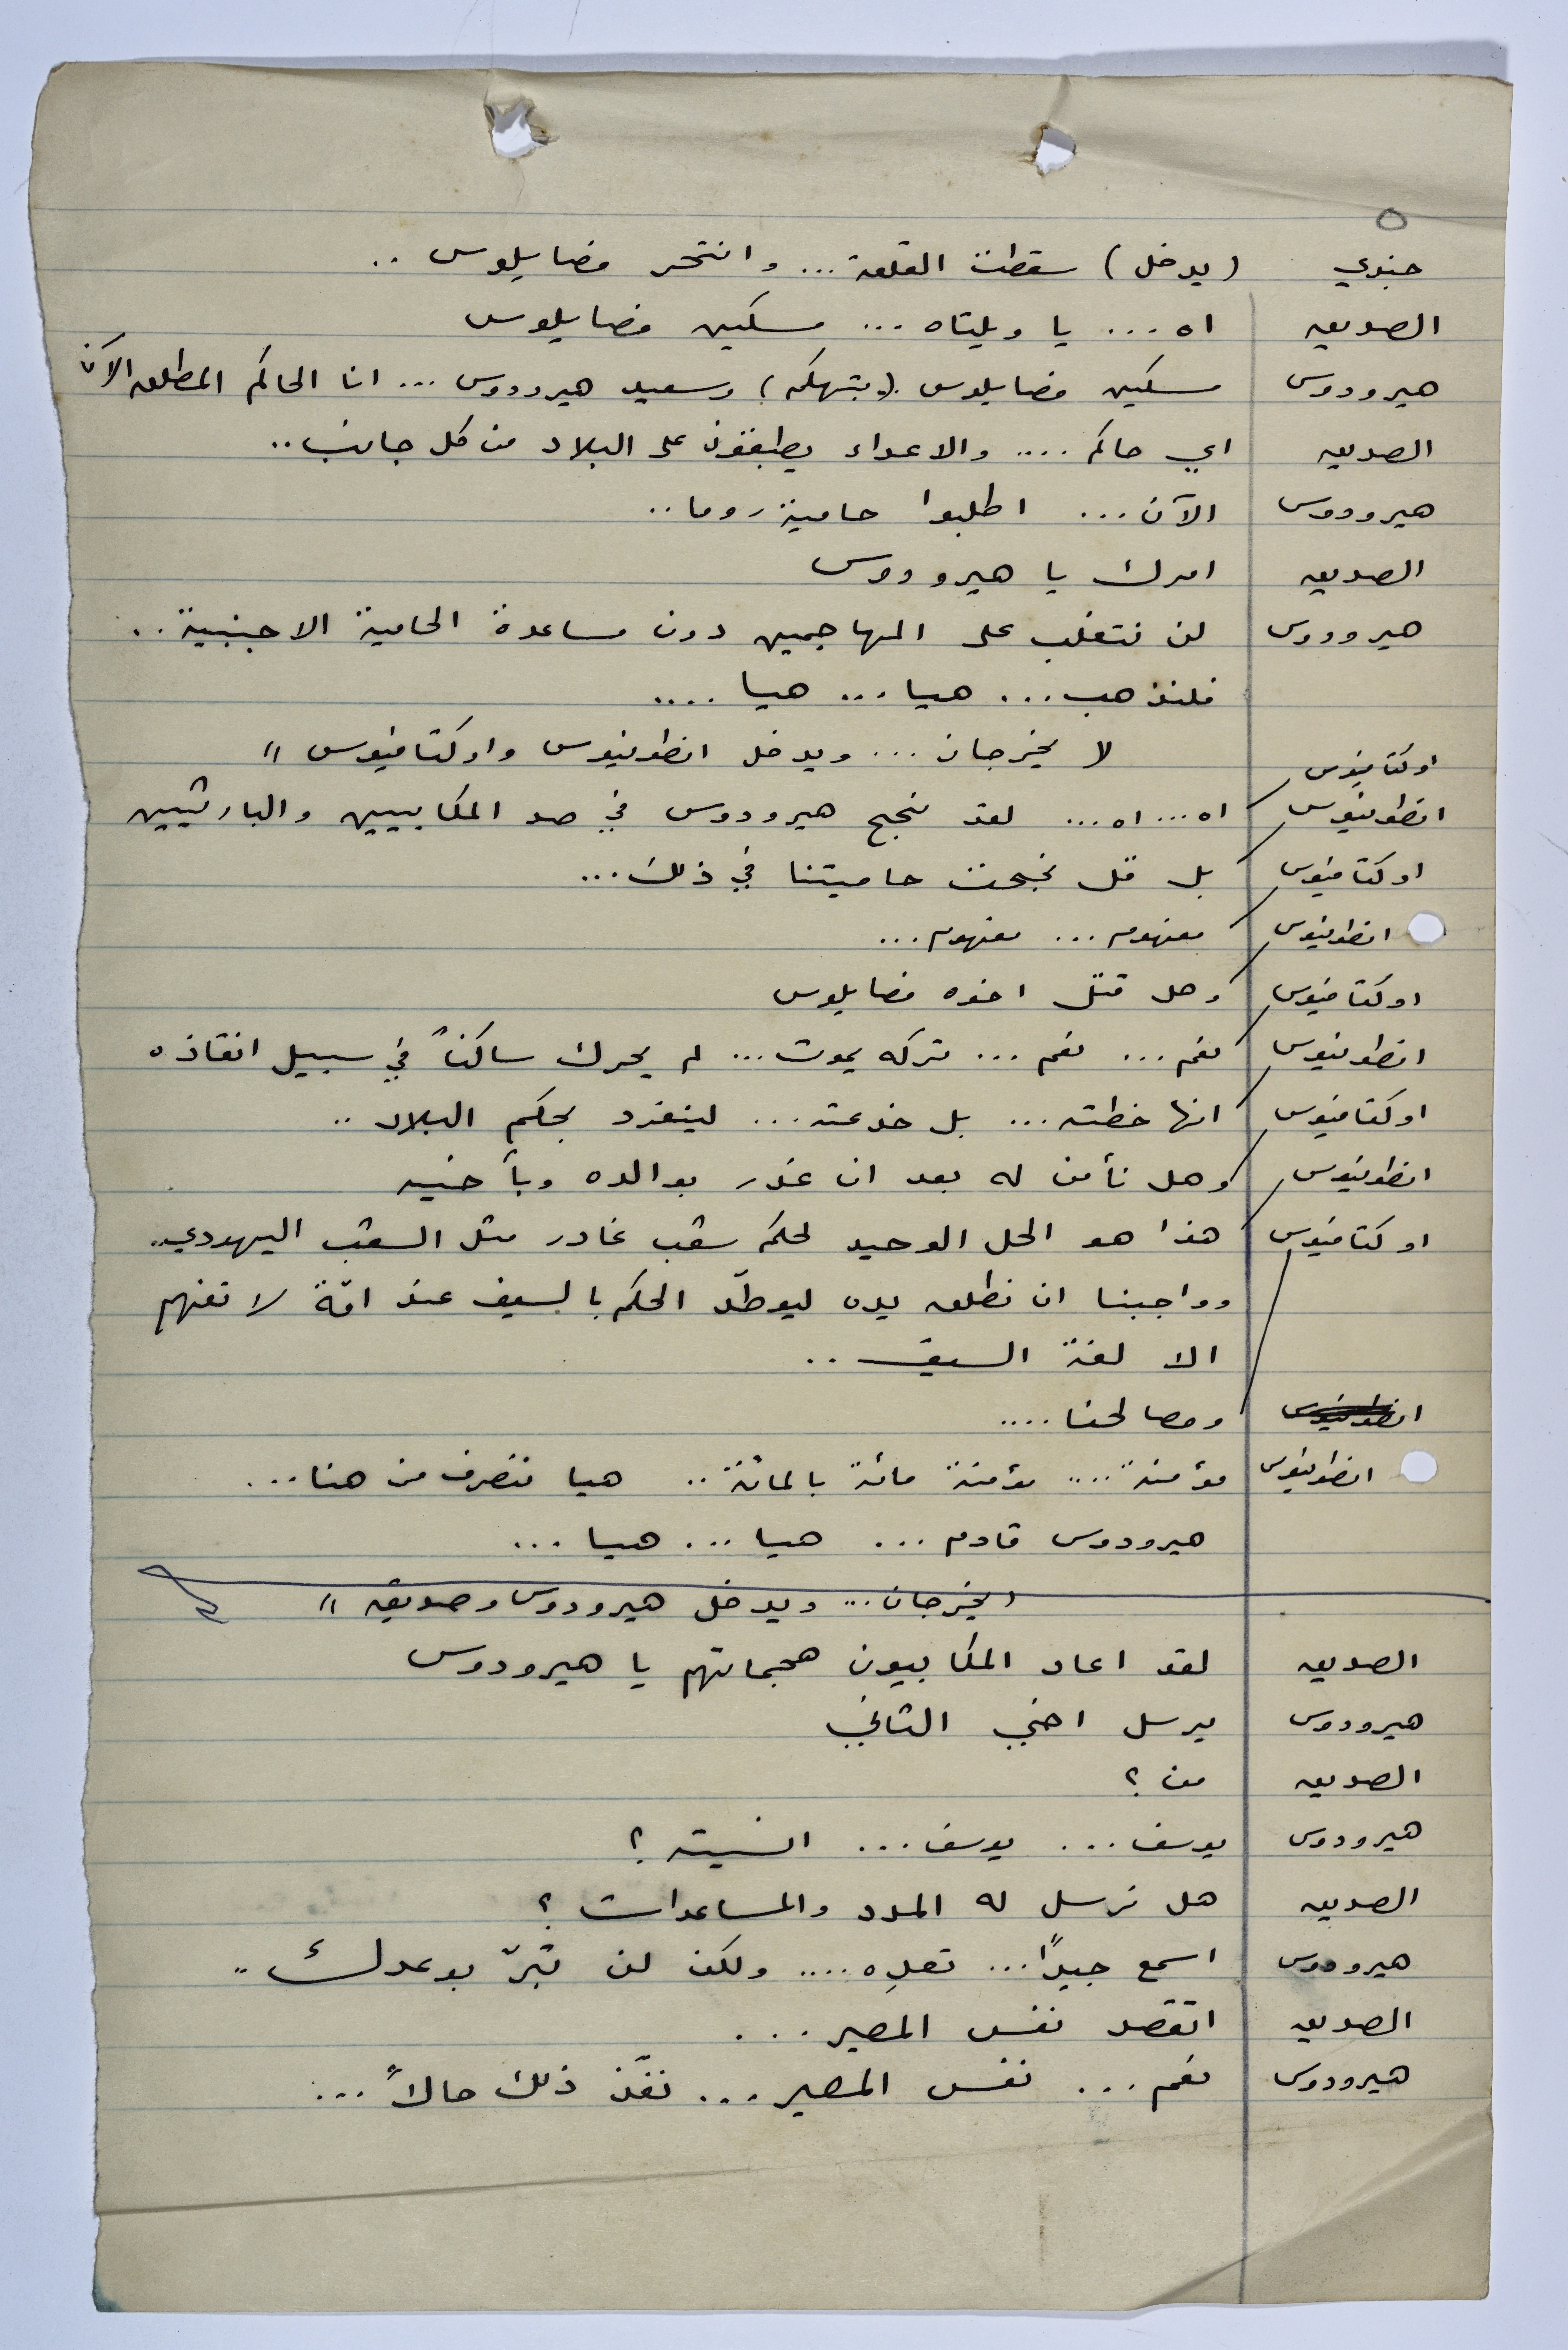 ٥
جندي (يدخل) سقطت القلعة... وانتحر فضايلوس ..
الصديق اه... يا ويلتاه... مسكين فضايلوس
هيرودوس مسكين فضايلوس (بتهكم) وسعيد هيرودوس... انا الحاكم المطلق الآن
الصديق اي حاكم.... والاعداء يطبقون على البلاد من كل جانب..
هيرودوس الآن... اطلبوا حامية روما..
الصديق امرك يا هيرودوس
هيرودوس لن نتغلب على المهاجمين دون مساعدة الحامية الاجنبية..
فلنذهب... هيا... هيا....
" يخرجان... ويدخل انطونيوس واوكتافيوس "
اوكتافيوس
انطونيوس اه... اه... لقد نجح هيرودوس في صد المكابيين والبارثيين
اوكتافيوس بل قل نجحت حاميتنا في ذلك...
انطونيوس مفهوم... مفهوم...
اوكتافيوس وهل قتل اخوه فضايلوس
انطونيوس نعم... نعم... تركه يموت... لم يحرك ساكناً في سبيل انقاذه
اوكتافيوس انها خطته... بل خدعته... لينفرد بحكم البلاد..
انطونيوس وهل نأمن له بعد ان غدر بوالده وبأخيه
اوكتافيوس هذا هو الحل الوحيد لحكم شعب غادر مثل الشعب اليهودي..
وواجبنا ان نطلق يده ليوطّد الحكم بالسيف عند امّة لا تفهم
الا لغة السيف..
انطونيوس ومصالحنا....
انطونيوس مؤمنة.... مؤمنة مائة بالمائة.. هيا ننصرف من هنا...
هيرودوس قادم... هيا... هيا...
" يخرجان... ويدخل هيرودوس وصديقه "
الصديق لقد اعاد المكابيون هجماتهم يا هيرودوس
هيرودوس يرسل اخي الثاني
الصديق من؟
هيرودوس يوسف... يوسف... انسيته؟
الصديق هل نرسل له المدد والمساعدات؟
هيرودوس اسمع جيداً... تعدِه.... ولكن لن تبرّ بوعدك..
الصديق اتقصد نفس المصير...
هيرودوس نعم... نفس المصير... نفّذ ذلك حالاً...